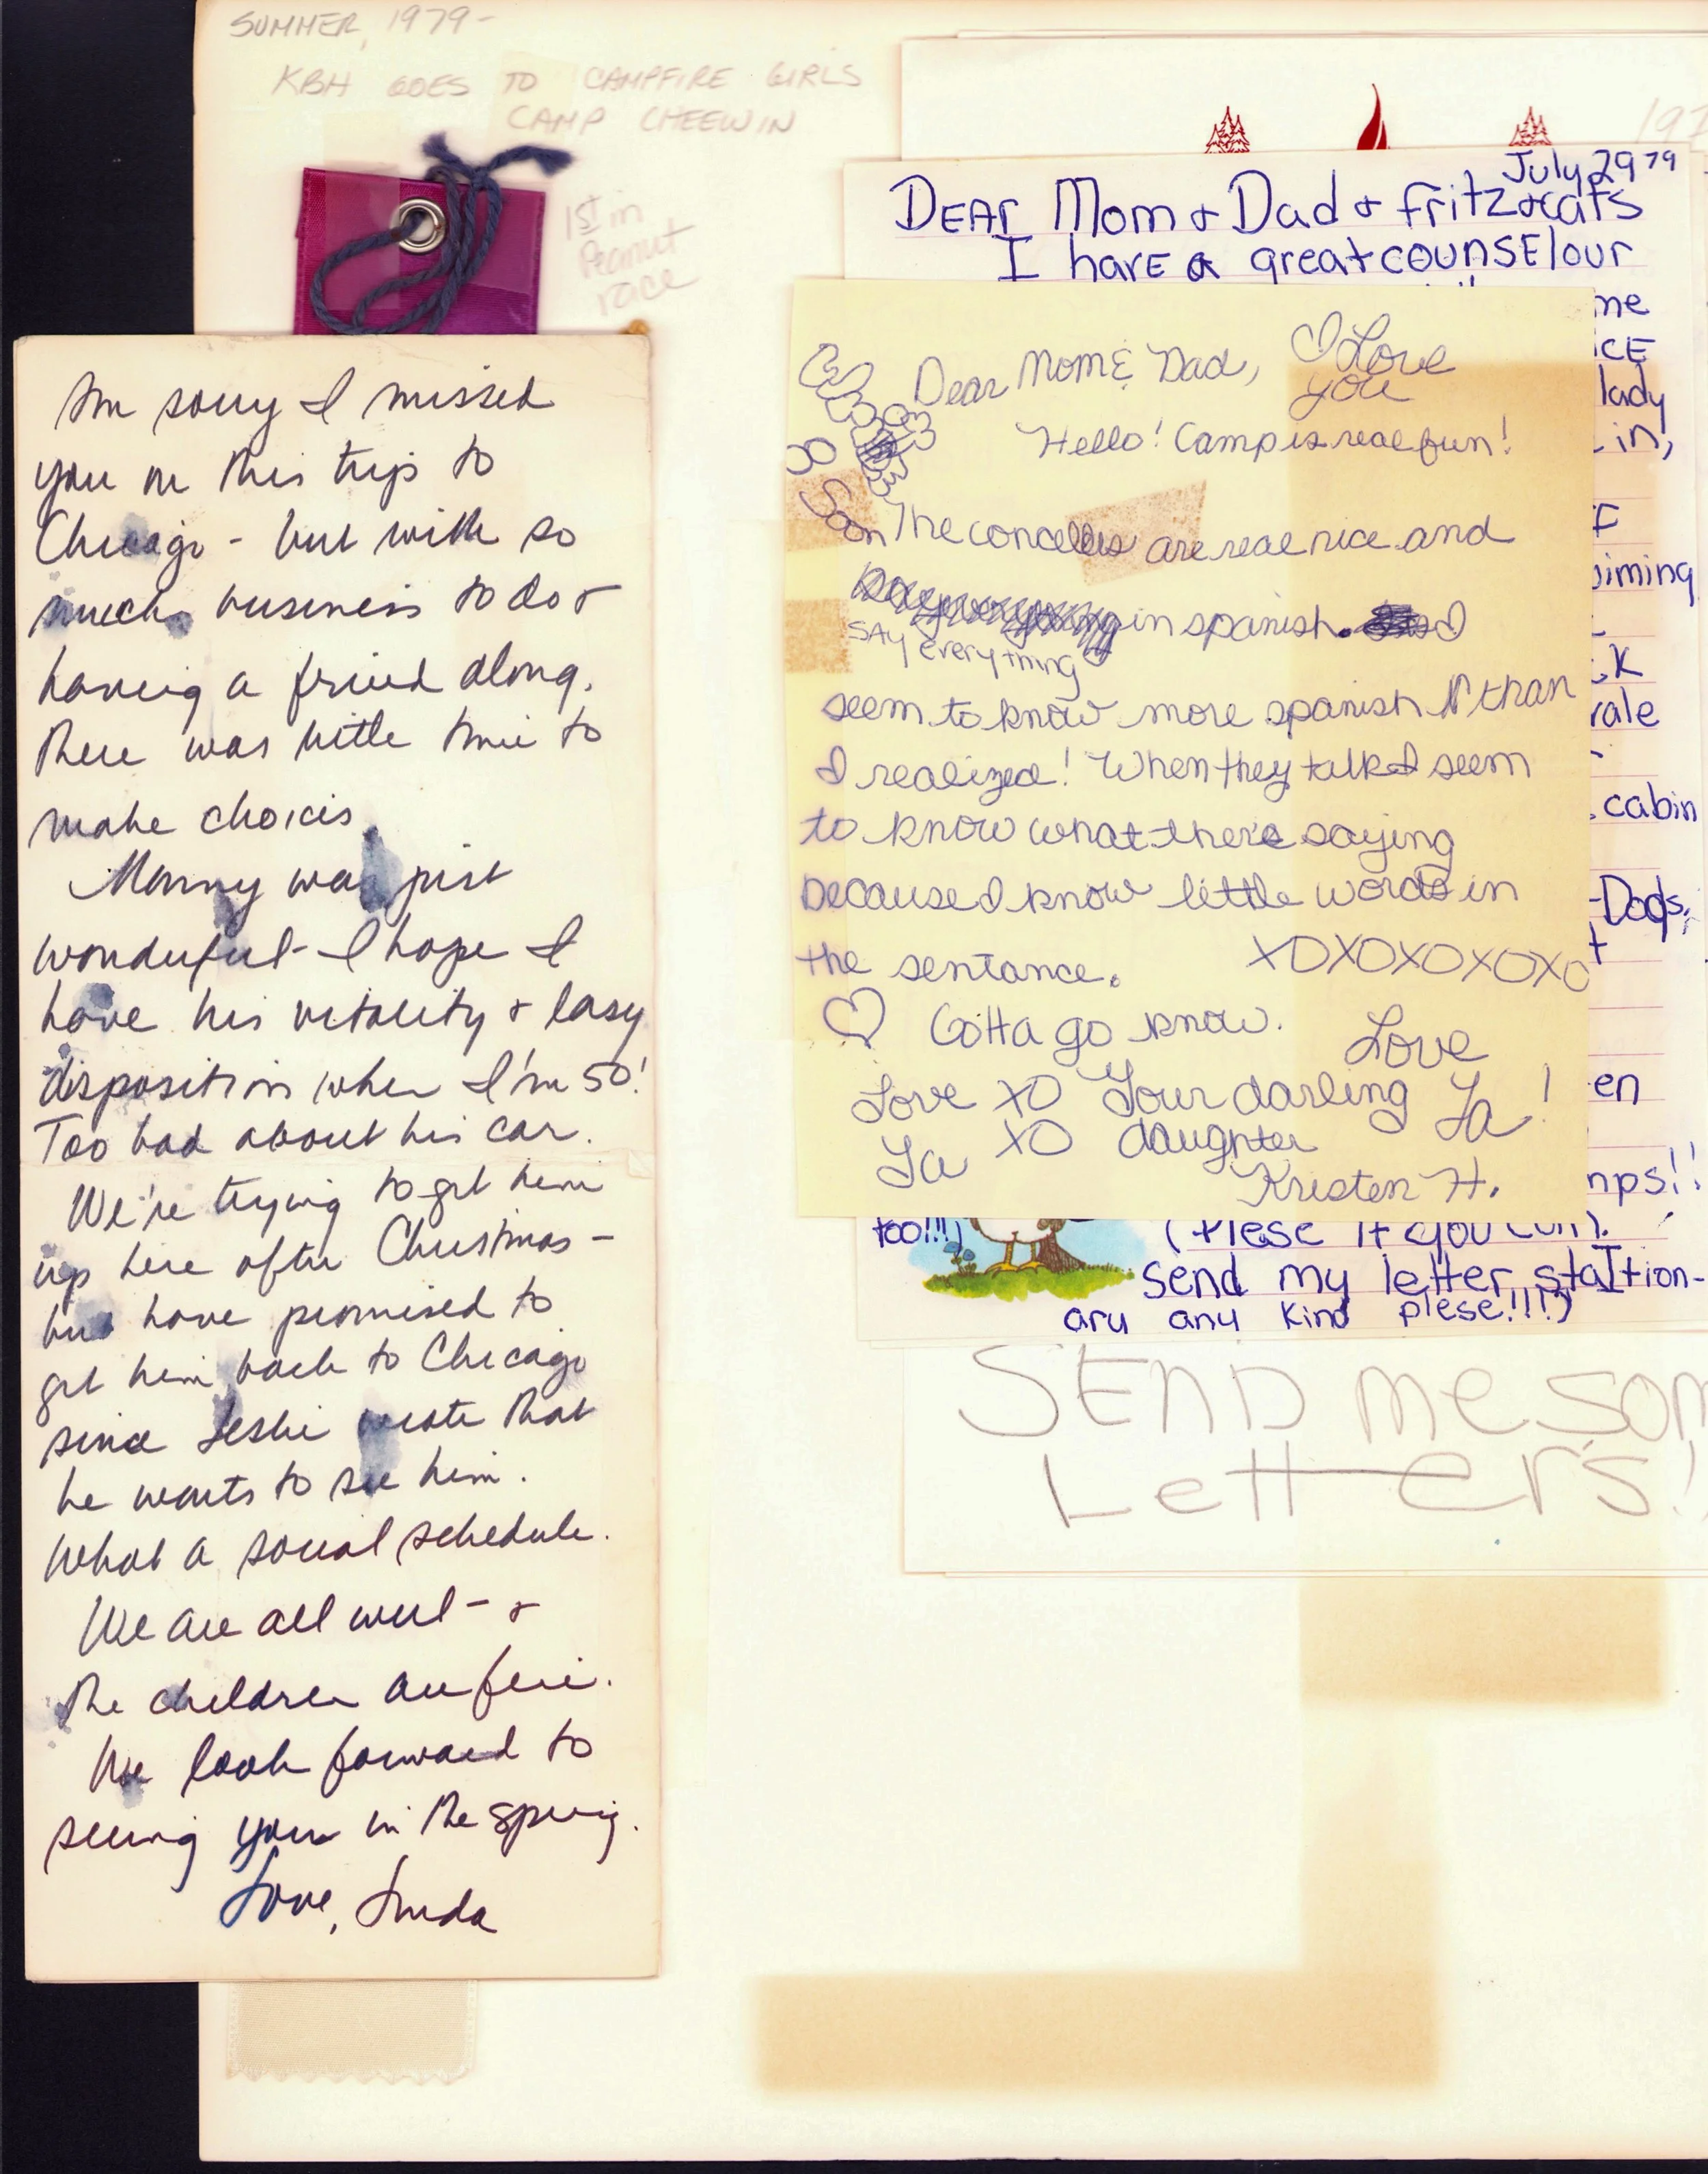 SUMMER, 1979-
KBH GOES TO CAMPFIRE GIRLS
CAMP CHEEWIN
1st in
Peanut
race
Im sorry I missed
you on this trip to
Chicago - but with so
much business to do &
having a friend along,
there was little time to
make choices.
Manny was just
wonderful - I hope I
have his vitality & easy
disposition when I'm 50!
Too bad about his car.
We're trying to get him
up here after Christmas -
but have promised to
get him back to Chicago
since Leslie wrote that
he wants to see him.
What a social schedule.
We are all well - &
the children are fine.
We look forward to
seeing you in the spring.
Love, Linda
197
July 29 79
DEAr Mom & Dad & fritz & cats
I havE a great counsElour
me
ICE
lady
in,
F
iming
CK
rale
cabin
-Dogs,
t
en
mps!!
too!!!)
(Plese if you can).
Send my letter staItion-
ary any kind plese!!!!)
Dear Mom & Dad,
I Love
you
Hello! Camp is real fun!
Son The concelles are real nice and
say everything
in spanish. I
seem to know more spanish than
I realized! When they talk I seem
to know what there saying
because I know little words in
the sentance.
XOXOXOXOXO
Gotta go know.
Love
Ya!
Love XO Your darling
Ya XO daughter
Kristen H.
SEnD me som
LeTTers!